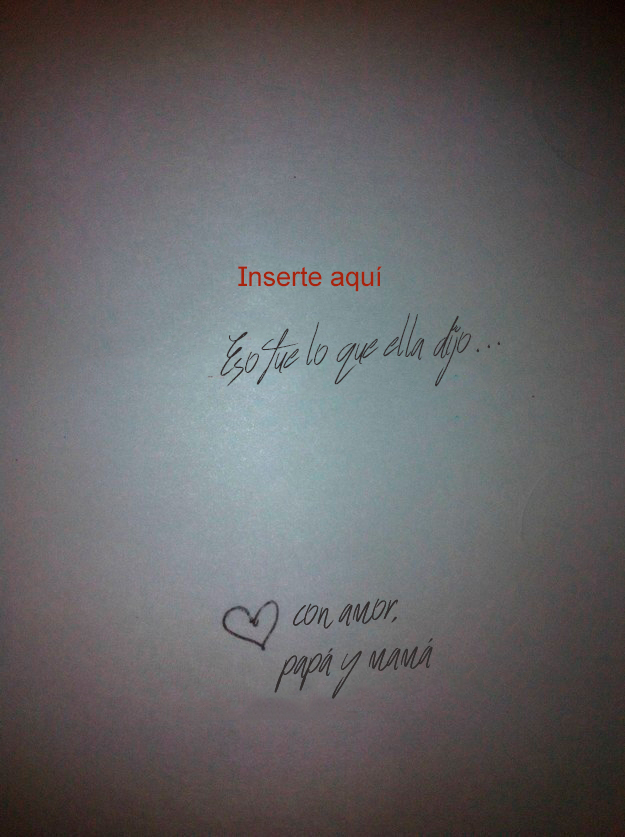 Inserte aquí
Eso fue lo que ella dijo...
con amor,
papá y mamá